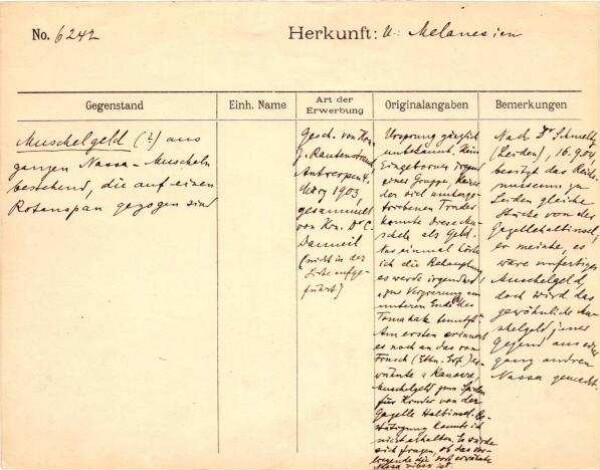 No. 6242
Herkunft: U.: Melanesien
Gegenstand
Einh. Name
Art der Erwerbung
Originalangaben
Bemerkungen
Muschelgeld (?) aus
ganzen Nassa-Muscheln
bestehend, die auf einen
Rotanspan gezogen sind
Gesch. von Hrn.
J. Rautenstrauch
Antwerpen 4.
März 1903,
gesammelt
von Hrn. Dr C.
Danneil
(nicht in der
Liste aufge-
führt)
Ursprung gänzlich
unbekannt. Kein
Eingeborner irgend
einer Gruppe,
der viel
Trader
kannte diese Mu-
scheln als Geld.
Nur einmal hörte
ich die Behauptung
es werde irgendwo
zur Verzierung am
unteren Ende des
Tomahak benutzt.
Am ersten erinnert
es noch an das von
Finsch (Ethn. Erf.) er-
wähnte
Muschelgeld zum Spielen
für Kinder von der
Gazelle Halbinsel. Be-
stätigung konnte ich
nicht erhalten. Es würde
sich fragen, ob das vor-
liegende die dort erwähnte
Nassa vibex ist.
Nach Dr Schmeltz
(Leiden), 16.9.04
besitzt das Reichs-
museum zu
Leiden gleiche
Stücke von der
Gazellehalbinsel,
er meinte, es
wäre unfertiges
Muschelgeld,
doch wird das
gewöhnliche Mu-
schelgeld jener
Gegend aus einer
ganz andren
Nassa gemacht.